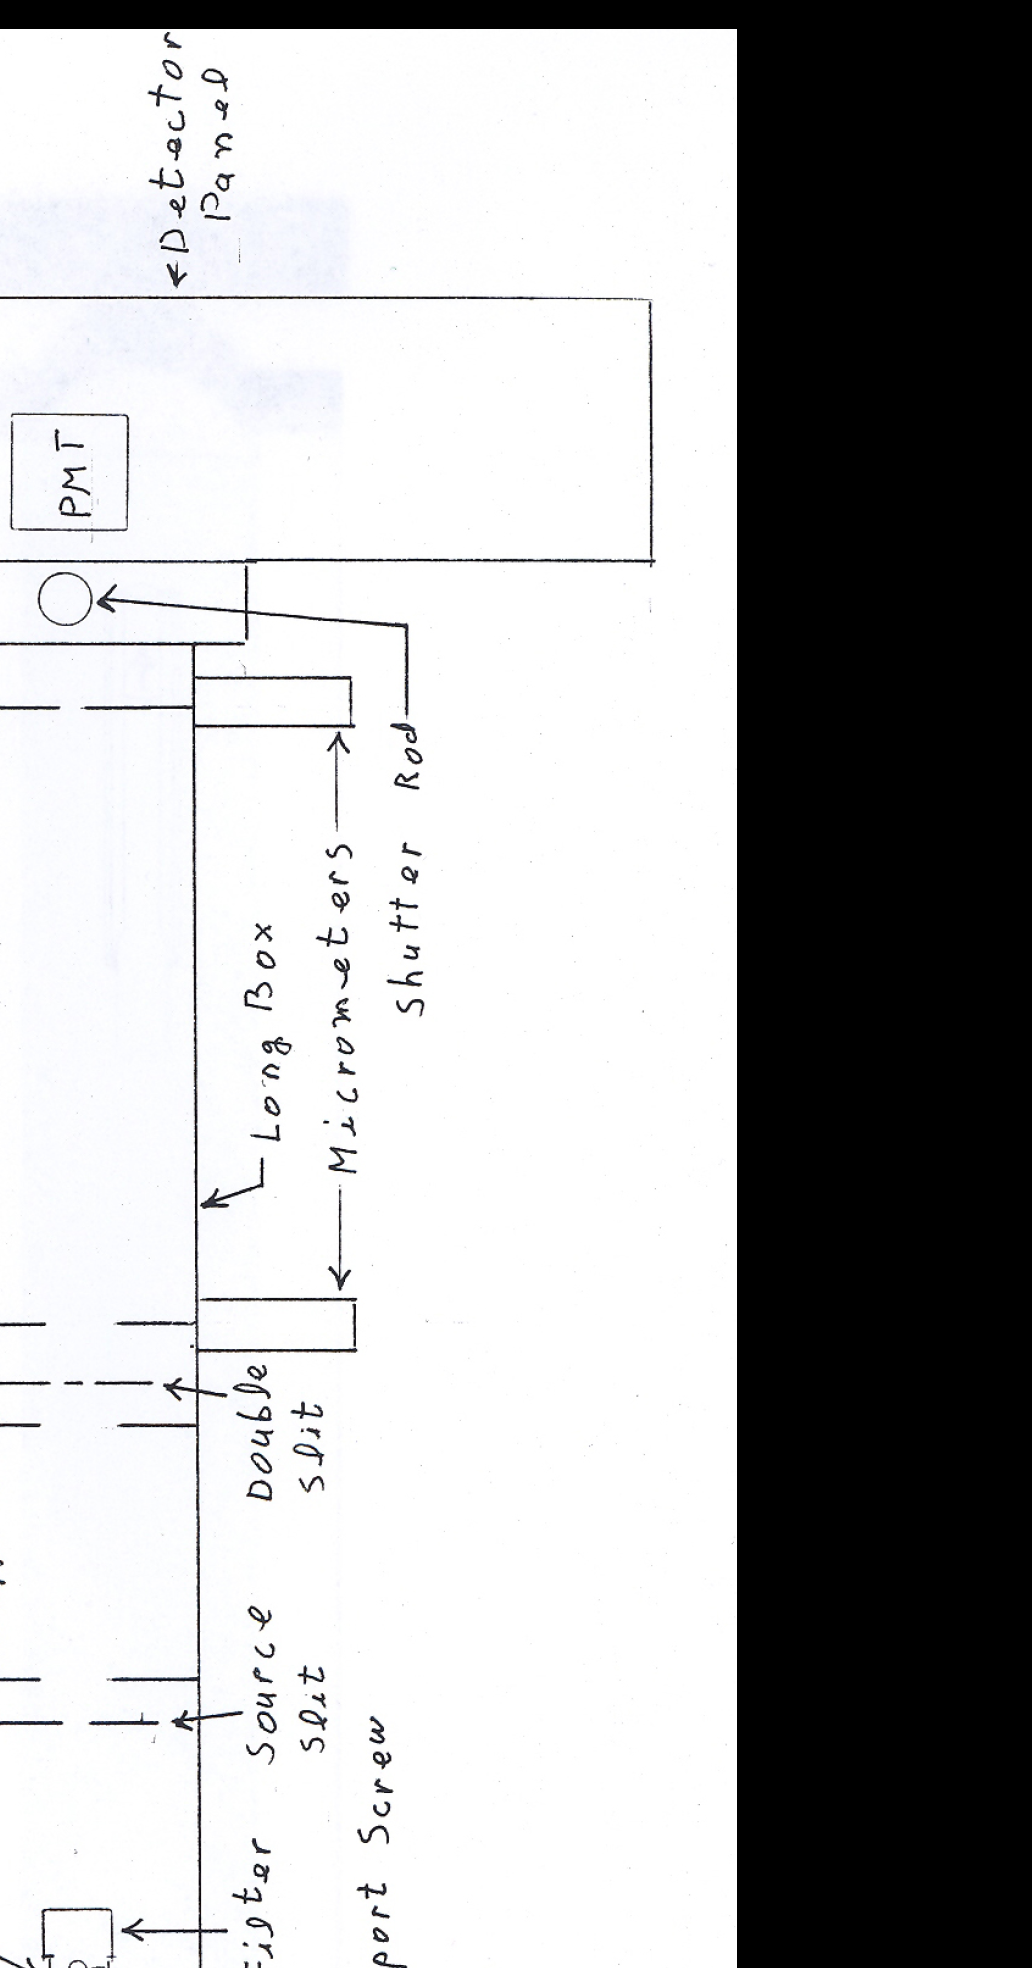 Detector
Panel
PMT
Shutter Rod
Micrometers
Long Box
Double
Slit
Source
Slit
Filter
port Screw